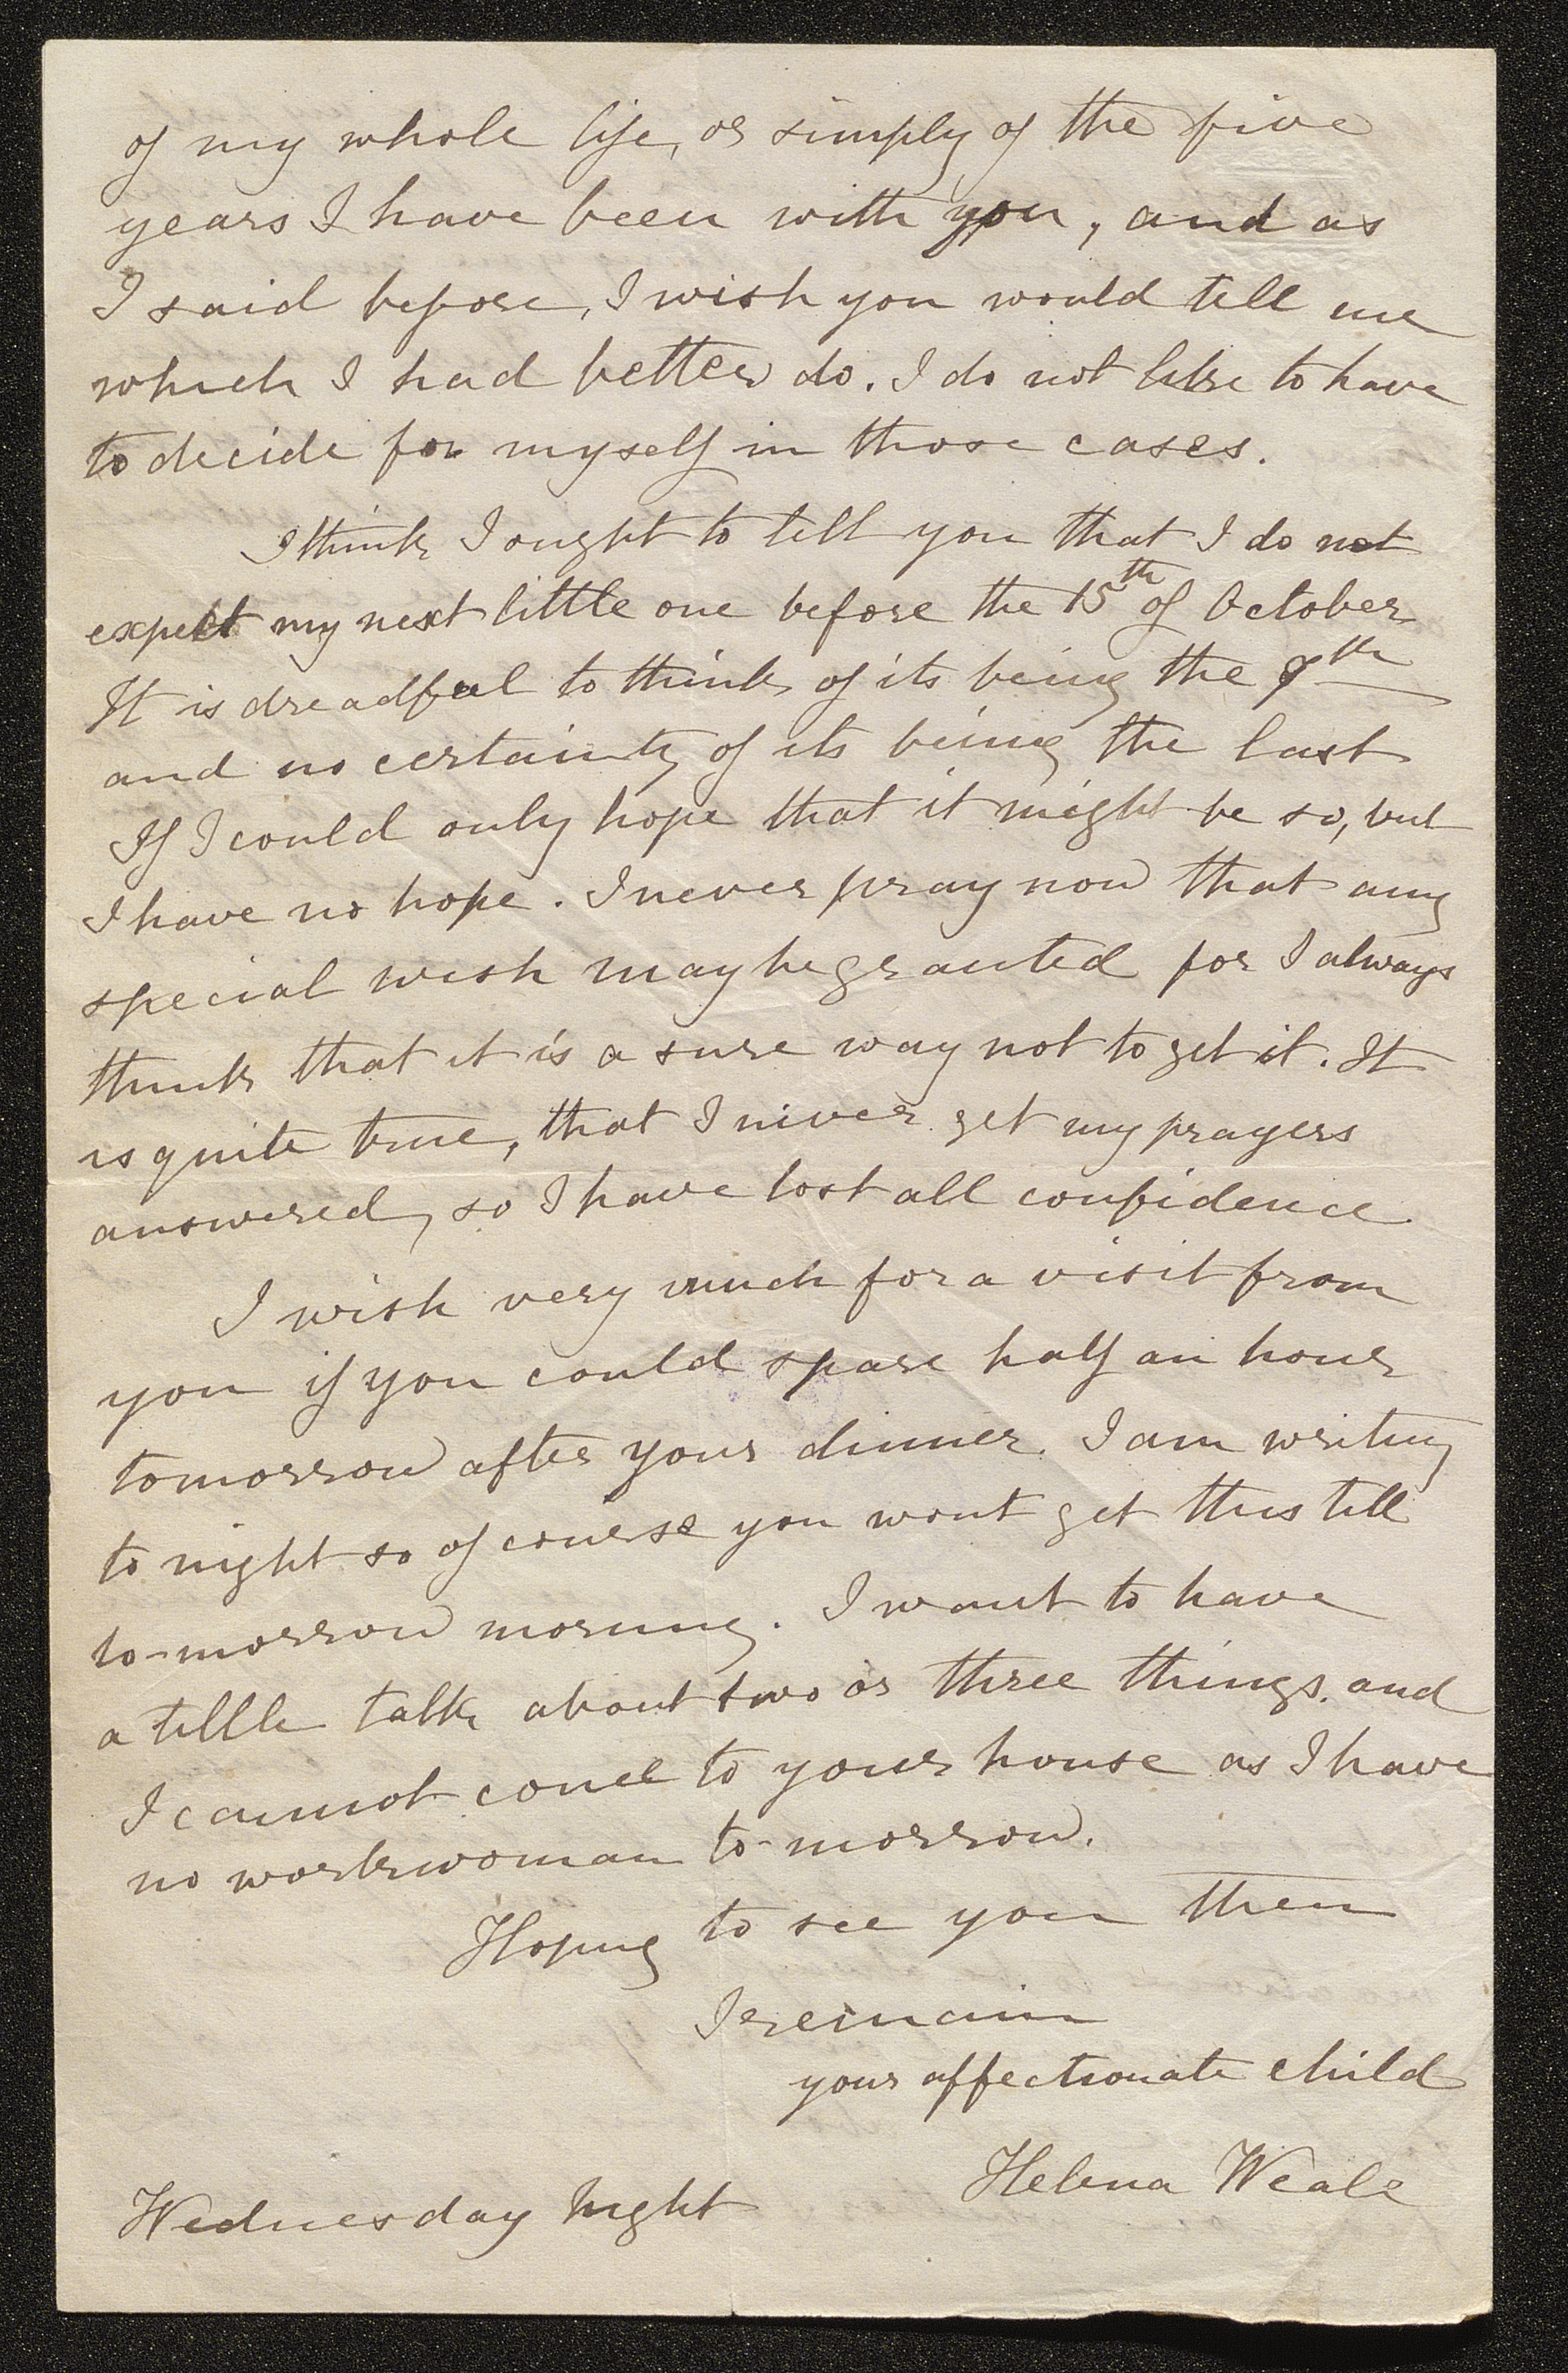 of my whole life, or simply of the five
years I have been with you, and as
I said before, I wish you would tell me
which I had better do. I do not like to have
to decide for myself in those cases.
I think I ought to tell you that I do not
expect my next little one before the 15th of October
It is dreadful to think of its being the
and no certainty of its being the last
If I could only hope that it might be so, but
I have no hope. I never pray now that any
special wish may be granted for I always
think that it is a sure way not to get it. It
is quite true, that I never get my prayers
answered, so I have lost all confidence.
I wish very much for a visit from
you if you could spare half an hour
tomorrow after your dinner. I am writing
to night so of course you wont get this till
to-morrow morning. I want to have
a little talk about two or three things. and
I cannot come to your house as I have
no workwoman to-morrow.
Hoping to see you then
I remain
your affectionate child
Helena Weale
Wednesday Night